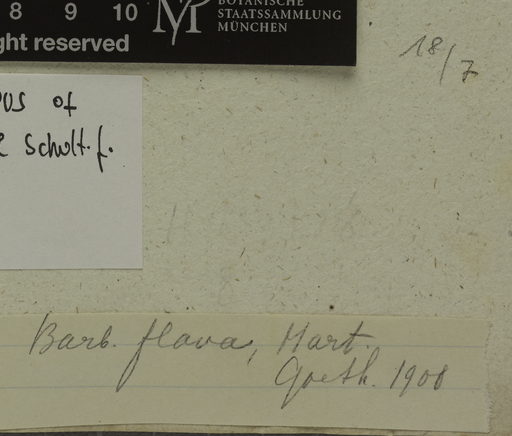 8 9 10
ght reserved
BOTANISCHE
STAATSSAMMLUNG
MÜNCHEN
18/7
of
Schult. f.
Barb. flava, Mart.
Goeth. 1908